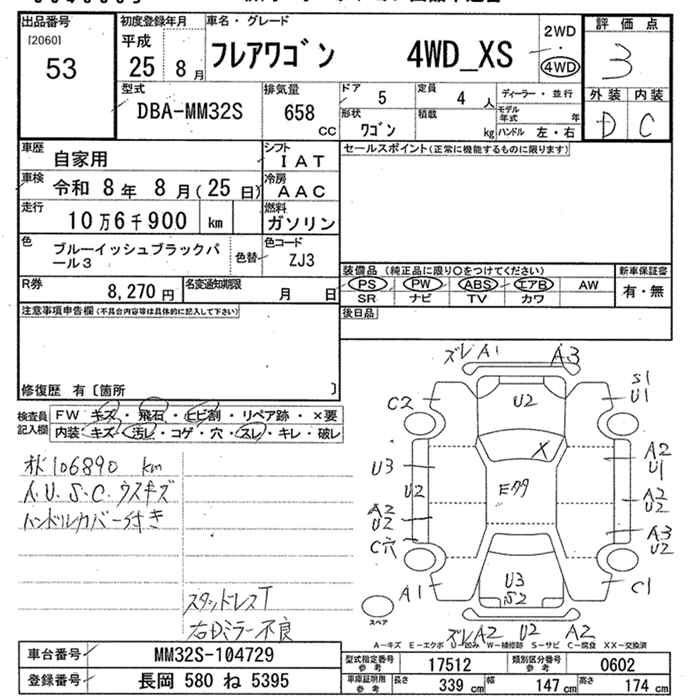 出品番号
[2060]
53
初度登録年月
平成
25年 8月
車名・グレード
フレアワゴン 4WD_XS
2WD
・
4WD
評価点
3
外装 内装
D C
型式
DBA-MM32S
排気量
658 CC
ドア 5
定員 4 人
形状 ワゴン
積載 kg
ディーラー・並行
モデル年式 年
ハンドル 左・右
車歴 自家用
シフト IAT
車検 令和 8年 8月(25日)
冷房 AAC
走行 10万6千900 km
燃料 ガソリン
色 ブルーイッシュブラックパール3
色替
色コード ZJ3
R券 8,270円
名変通知期限 月 日
セールスポイント(正常に機能するものに限ります)
装備品(純正品に限り○をつけてください)
PS PW ABS エアB AW
SR ナビ TV カワ
新車保証書
有・無
後日品
注意事項申告欄(不具合内容等は具体的に記入して下さい)
修復歴 有〔箇所 〕
検査員記入欄
FW キズ・飛石・ヒビ割・リペア跡・×要
内装・キズ・汚レ・コゲ・穴・スレ・キレ・破レ
106890 km
A.U.S.C.ウスキズ
ハンドルカバー付き
スタッドレスT
右Dミラー不良
ズレ A1 A3
S1
U1
C2
U2
X
U3
U2
A2
U1
A2
U2
A2
U2
A3
U2
C穴
A1
U3
S2
C1
スペア
ズレ A2 U2 A2
A-キズ E-エクボ U-凹み W-補修跡 S-サビ C-腐食 XX-交換済
車台番号 MM32S-104729
登録番号 長岡 580 ね 5395
型式指定番号 参考 17512
類別区分番号 参考 0602
車庫証明用 参考 長さ 339cm 幅 147cm 高さ 174cm